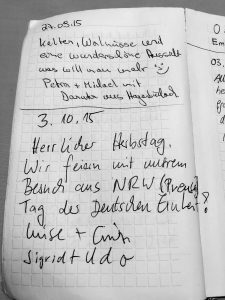 27.09.15
Keller, Walnüsse und
eine wunderschöne Aussicht
was will man mehr
Petra + Michael mit
aus
3.10.15
Herrlicher Herbsttag.
Wir feiern mit unserem
Besuch aus NRW
Tag des Deutschen Einheit!
Luise +
Sigrid + Udo
03.